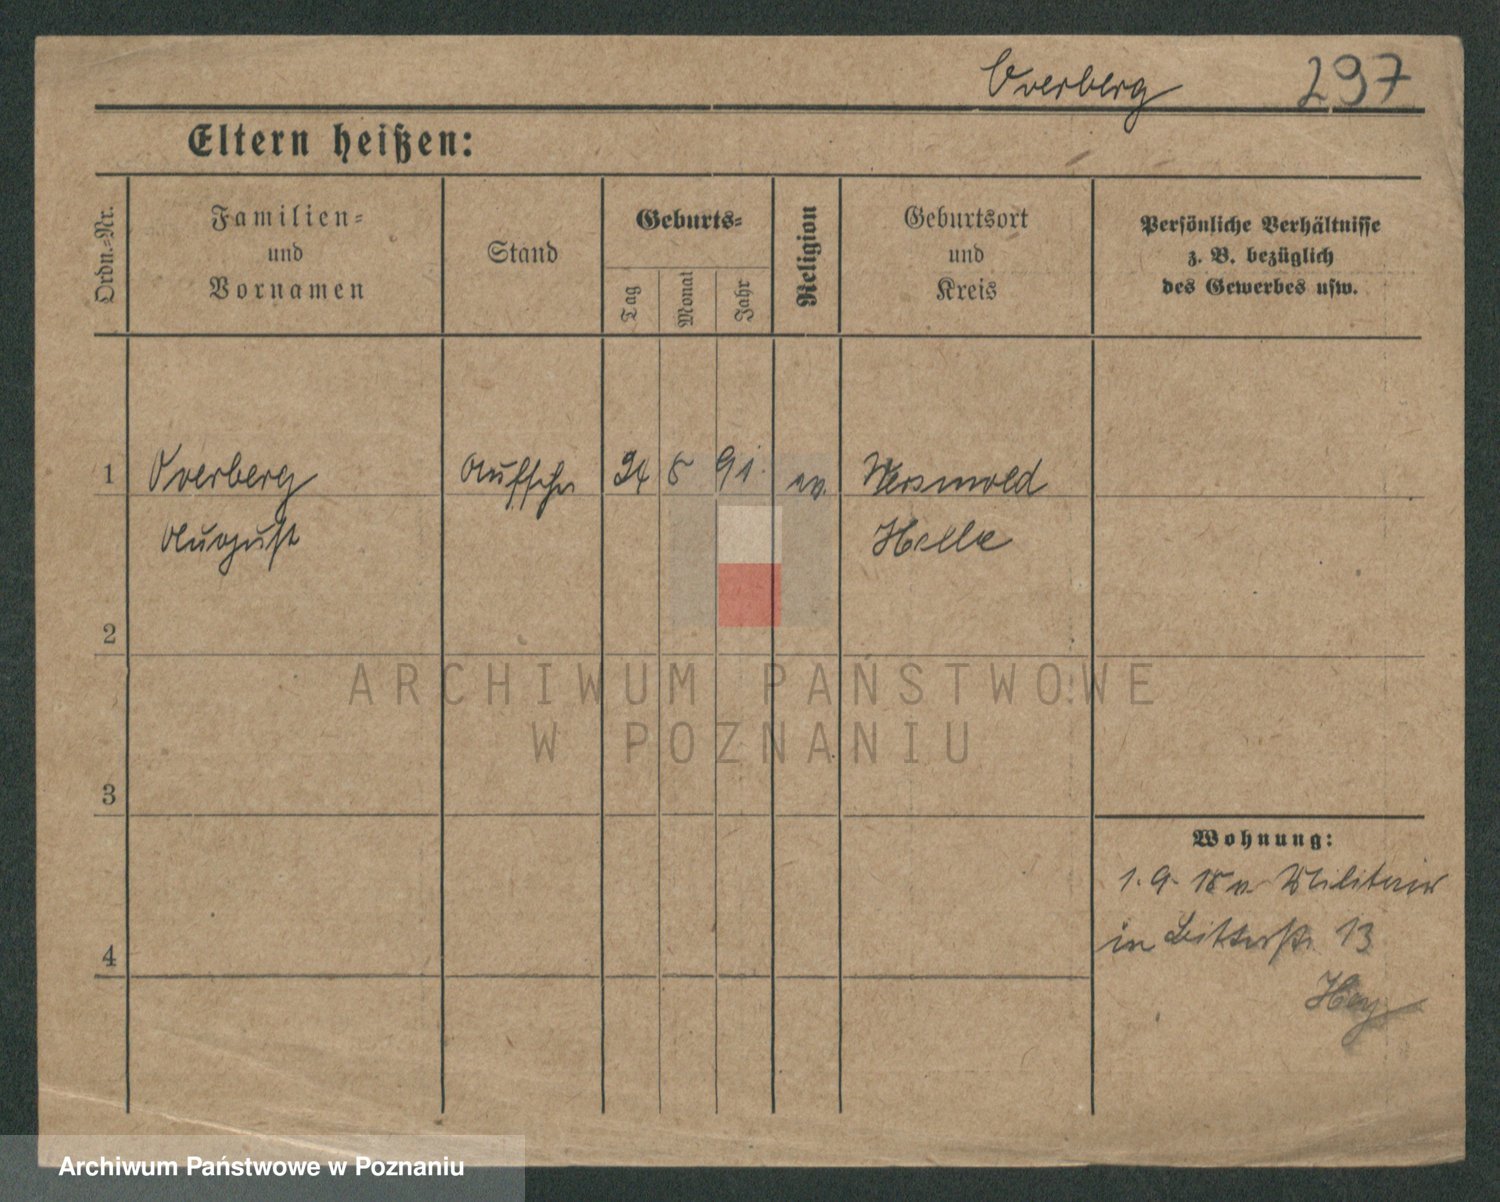 Overberg 297
Eltern heißen:
Ordn.-Nr.
Familien-
und
Vornamen
Stand
Geburts-
Tag
Monat
Jahr
Religion
Geburtsort
und
Kreis
Persönliche Verhältnisse
z. B. bezüglich
des Gewerbes usw.
1 Overberg 24 8 91. ev. Versmold
August Halle
2
3
4
Wohnung:
1. 9. 18 v. Militair
in 13
ARCHIWUM PAŃSTWOWE
W POZNANIU
Archiwum Państwowe w Poznaniu